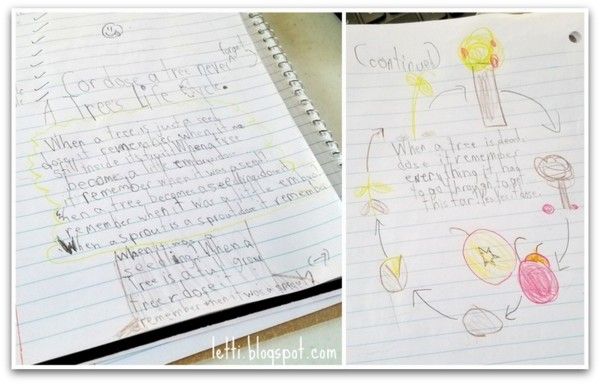 (or dose a tree never forget?)
A Tree's Life Cycle.
When a tree is just a seed
dose it remember when it
still inside its fruit. When a tree
become a little embryo dose
it remember when it was a seed?
When a tree become a seedling dose it
remember when it was a little embryo
When a sprout is a sprout dose it remember
When it was a
seedling. When a
Tree is a full grow
Tree dose it
remember when it was a sprout?
(→)
(continue)
When a tree is dead
dose it remember
everything it had
to go through to get
this far
letti.blogspot.com